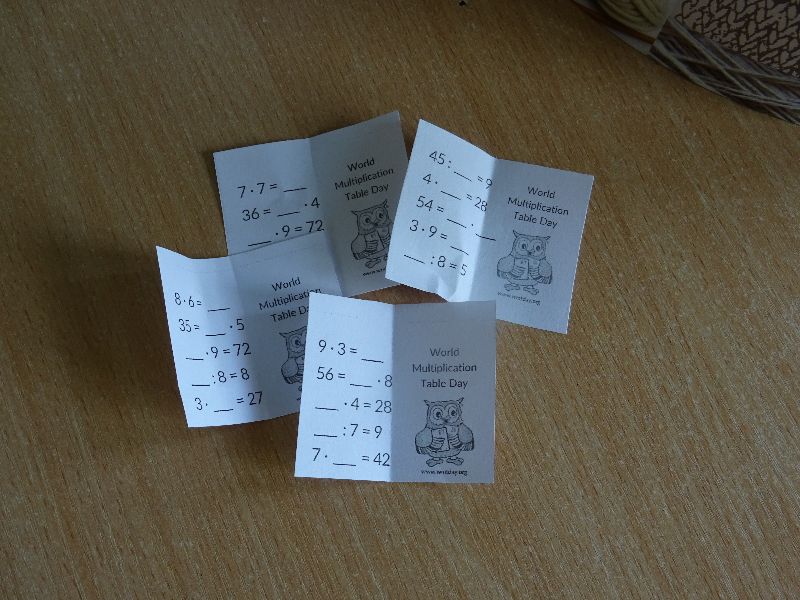 7 · 7 = ___
36 = ___ · 4
___ · 9 = 72
World
Multiplication
Table Day
45 : ___ = 9
4 · ___ = 28
54 = ___ · ___
3 · 9 = ___
___ : 8 = 5
World
Multiplication
Table Day
www.womtday.org
8 · 6 = ___
35 = ___ · 5
___ · 9 = 72
___ : 8 = 8
3 · ___ = 27
World
Multiplication
Table Day
9 · 3 = ___
56 = ___ · 8
___ · 4 = 28
___ : 7 = 9
7 · ___ = 42
World
Multiplication
Table Day